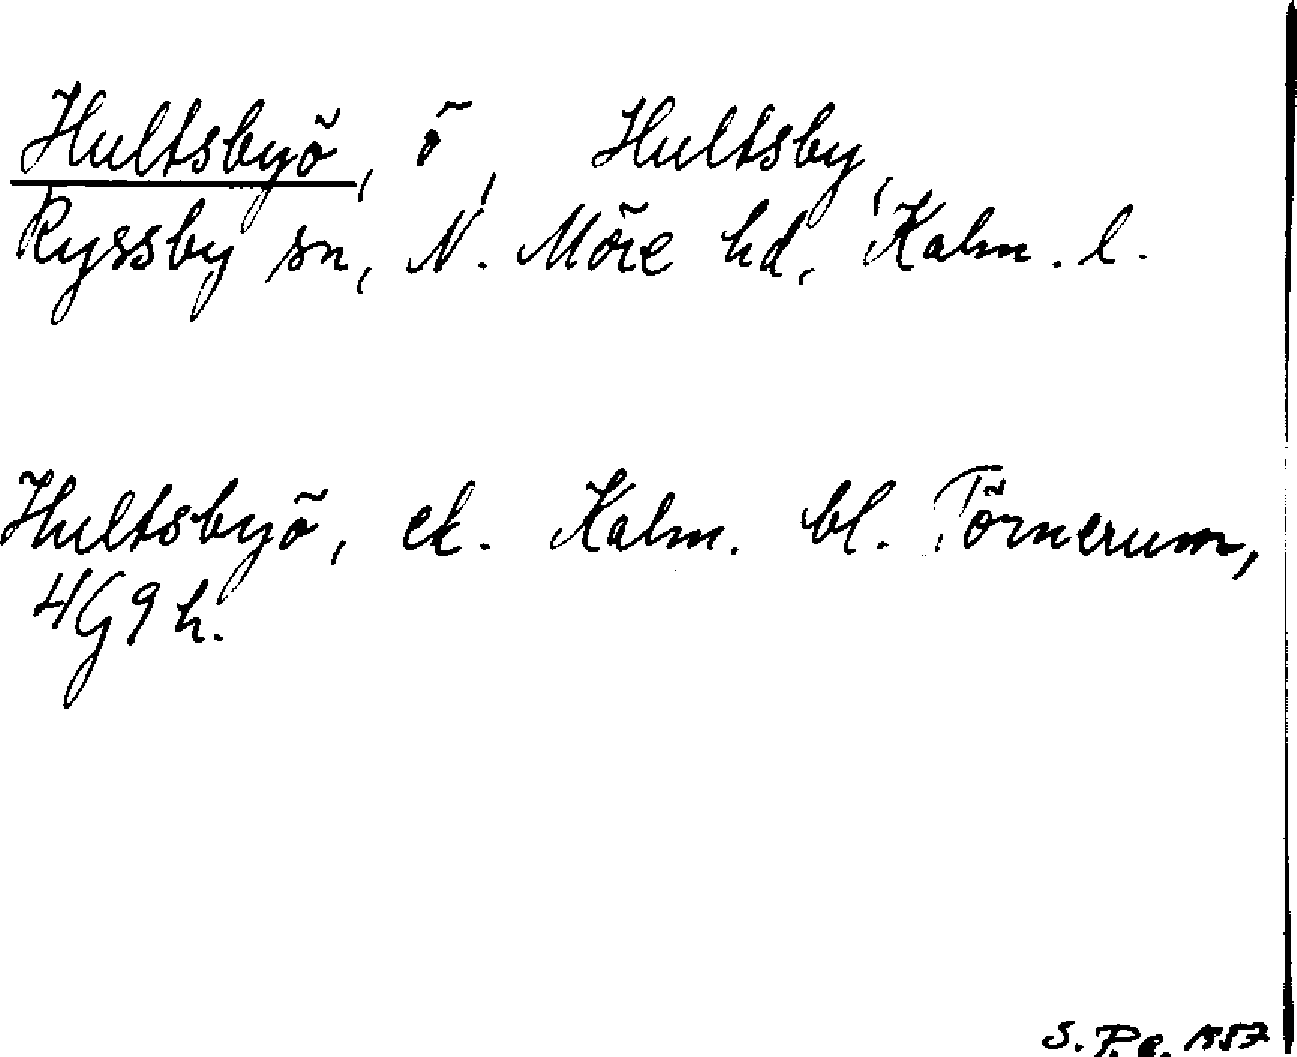 Hultsbyö, ö, Hultsby,
Ryssby sn, N. Möre hd, Kalm. l.
Hultsbyö, ek. Kalm. bl. Törnerum,
4G9h.
S. P-e. 1957